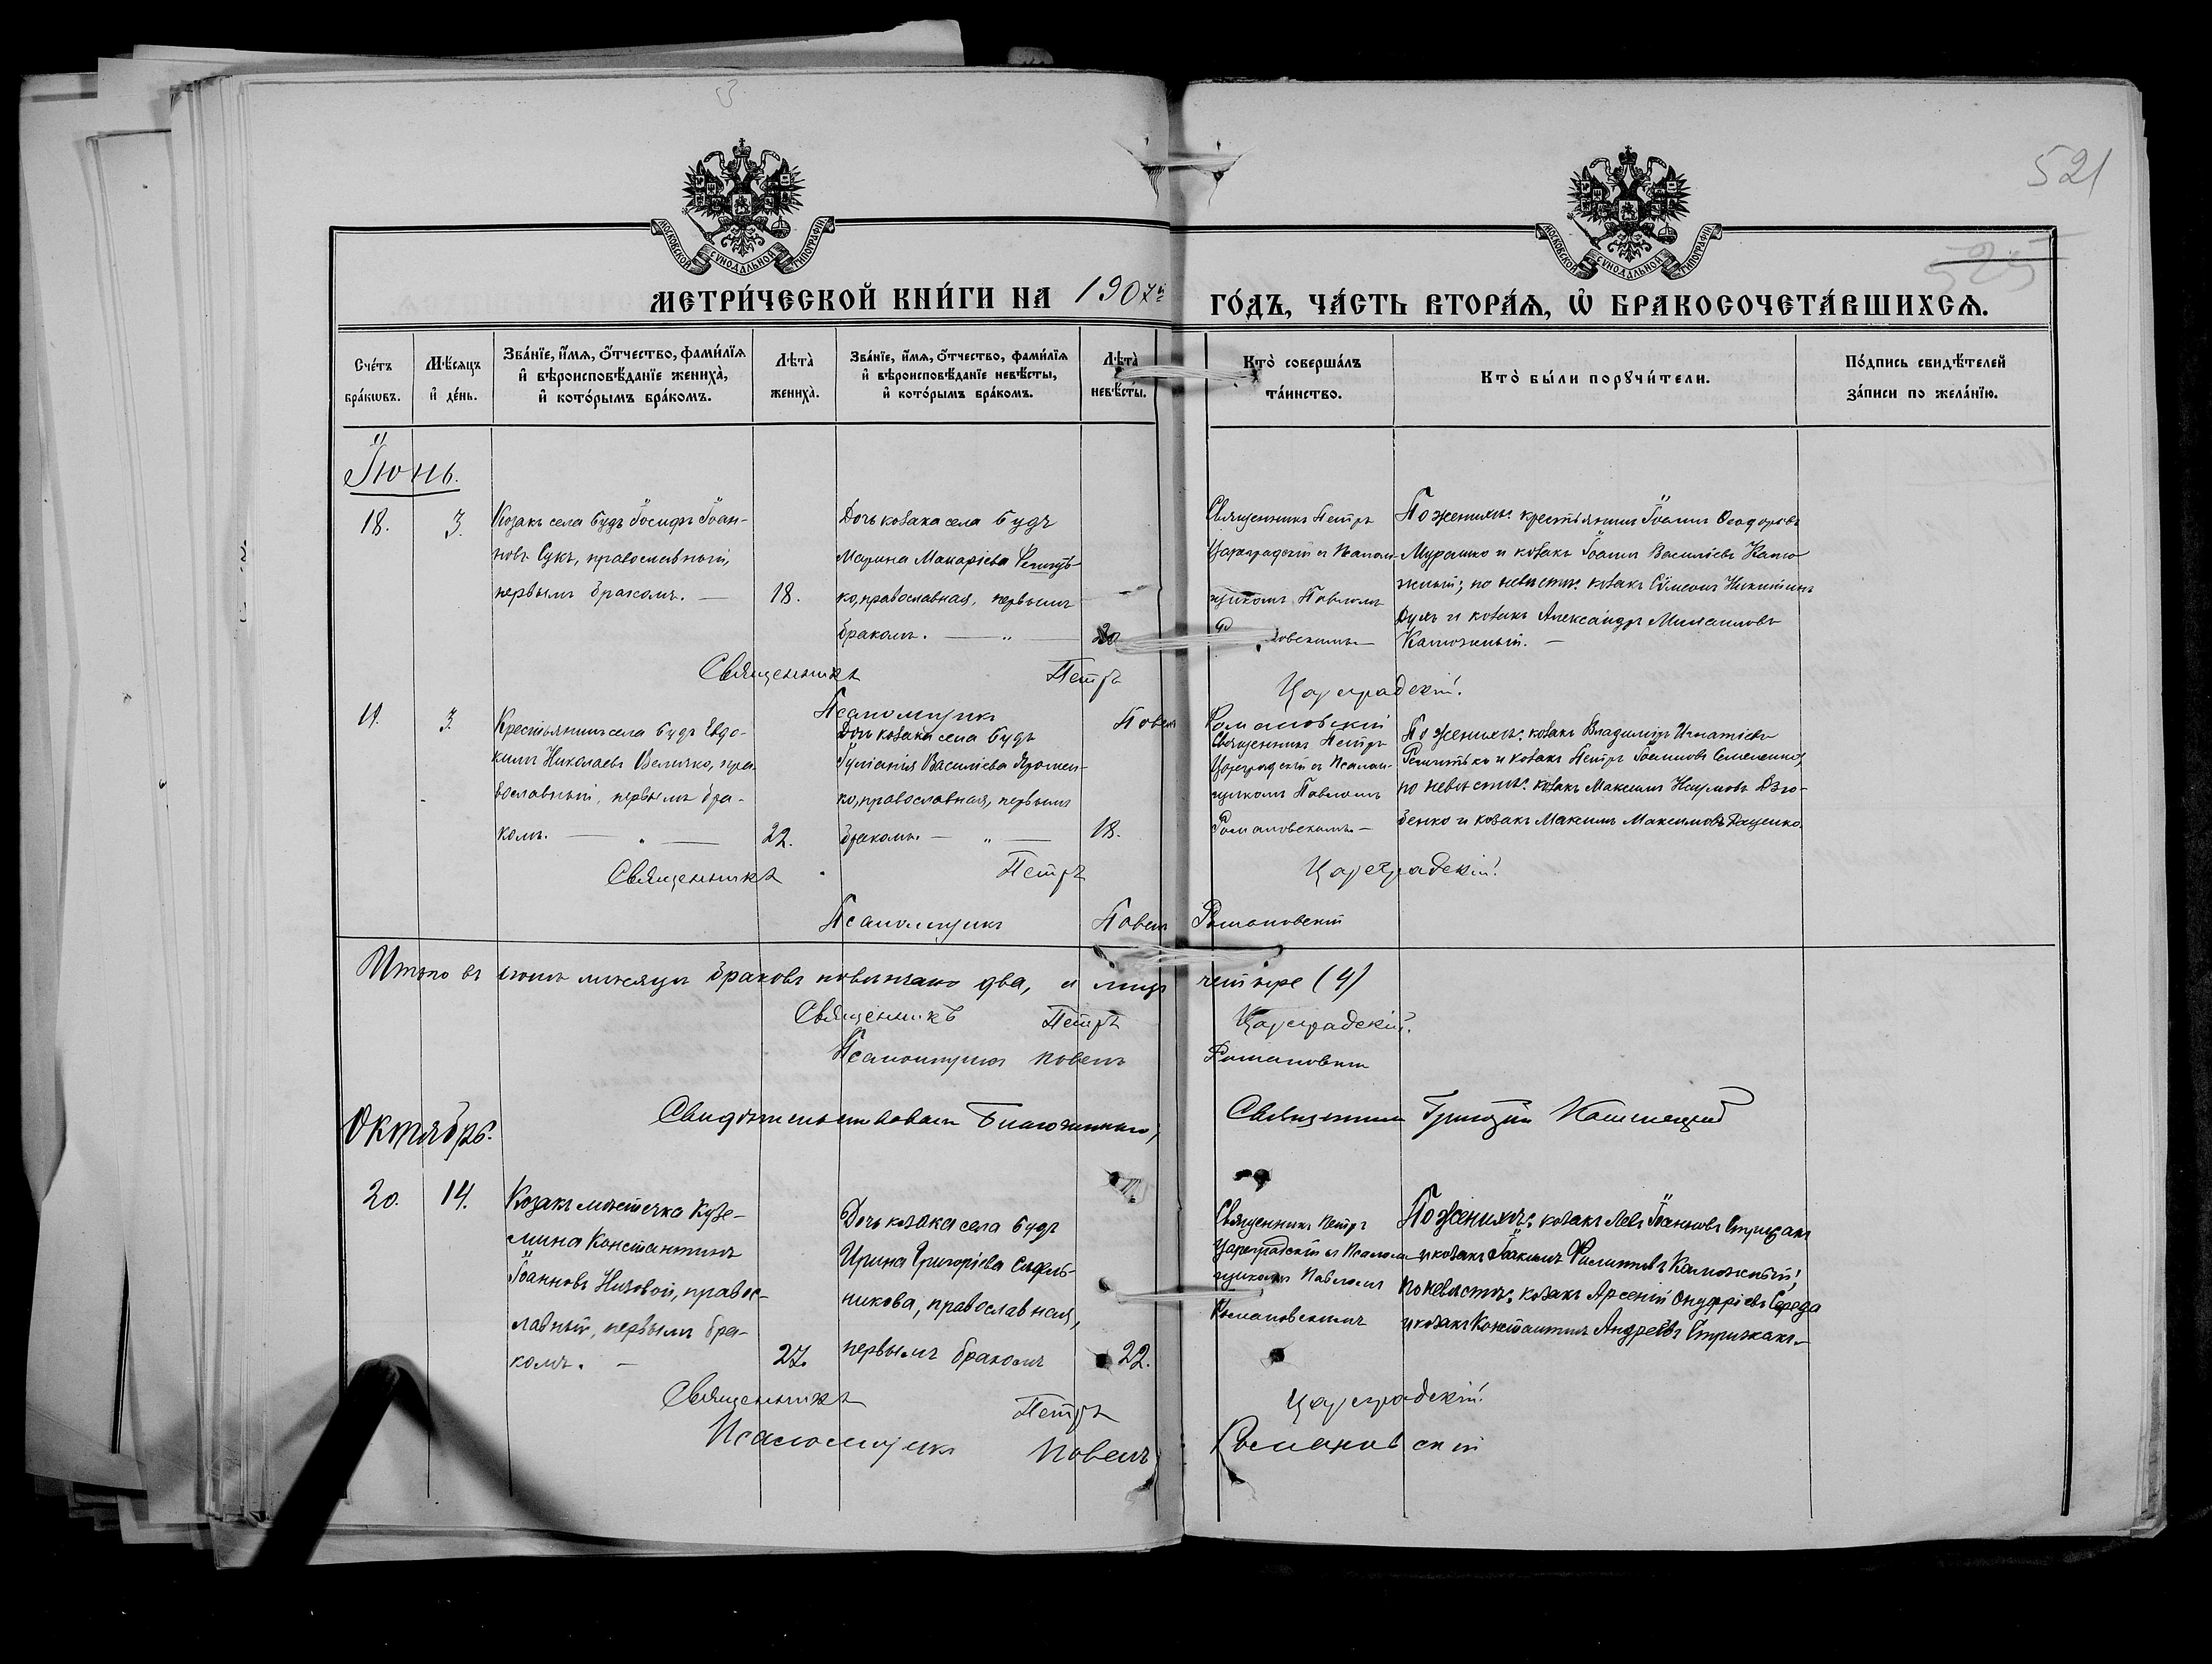 521
525
МОСКОВСКОЙ СѴНОДАЛЬНОЙ ТИПОГРАФІИ
МОСКОВСКОЙ СѴНОДАЛЬНОЙ ТИПОГРАФІИ
МЕТРИ́ЧЕСКОЙ КНИ́ГИ НА 1907й ГО́ДЪ, ЧА́СТЬ ВТОРА́Ѧ, Ѡ҆ БРАКОСОЧЕТА́ВШИХСѦ.
Сче́тъ бра́кѡвъ.
Мѣ́сѧцъ и҆ де́нь.
Зва́нїе, и҆́мѧ, ѻ҆́тчество, фами́лїѧ
и҆ вѣроисповѣ́данїе жениха̀,
и҆ кото́рымъ бра́комъ.
Лѣта̀ жениха̀.
Зва́нїе, и҆́мѧ, ѻ҆́тчество, фами́лїѧ
и҆ вѣроисповѣ́данїе невѣ́сты,
и҆ кото́рымъ бра́комъ.
Лѣта̀ невѣ́сты.
Кто̀ соверша́лъ та́инство.
Кто̀ бы́ли порꙋчи́тели.
По́дпись свидѣ́телей
за́писи по жела́нїю.
Іюнь.
18. 3.
Козакъ села Будъ Іосифъ Іоан-
новъ Сукъ, православный,
первымъ бракомъ. — 18.
Дочь козака села Будъ
Марина Макаріева Решить-
ко, православная, первымъ
бракомъ. — 20
Священникъ Петръ
Цареградскій съ Псалом-
щикомъ Павломъ
По женихѣ: крестьянинъ Іоаннъ Ѳеодоровъ
Мурашко и козакъ Іоаннъ Василіевъ Калю-
жный; по невѣстѣ: козакъ Сѵмеонъ Никитинъ
и козакъ Александръ Михаиловъ
Калюжный. —
Священникъ Петръ Цареградскій.
Псаломщикъ Павелъ Романовскій
19. 3.
Крестьянинъ села Будъ Евдо-
кимъ Николаевъ Величко, пра-
вославный, первымъ бра-
комъ. — 22.
Дочь козака села Будъ
Іуліанія Василіева Яремен-
ко, православная, первымъ
бракомъ. — 18.
Священникъ Петръ
Цареградскій съ Псалом-
щикомъ Павломъ
Романовскимъ. —
По женихѣ: козакъ Владиміръ Игнатіевъ
Решитько и козакъ Петръ Іоанновъ Семененко,
по невѣстѣ: козакъ Максимъ Наумовъ
и козакъ Максимъ Максимовъ Даценко.
Священникъ Петръ Цареградскій.
Псаломщикъ Павелъ Романовскій
Итого въ іюнѣ мѣсяцѣ браковъ повѣнчано два, а лицъ четыре (4)
Священникъ Петръ Цареградскій.
Псаломщикъ Павелъ Романовскій
Свидѣтельствовалъ Благочинный, Священникъ Григорій
Октябрь.
20. 14.
Козакъ мѣстечка Кузе-
мина Константинъ
Іоанновъ Низовой, правос-
лавный, первымъ бра-
комъ. — 27.
Дочь козака села Будъ
Ирина Григоріева Сидель-
никова, православная,
первымъ бракомъ 22.
Священникъ Петръ
Цареградскій съ Псалом-
щикомъ Павломъ
Романовскимъ
По женихѣ: козакъ Левъ Іоанновъ Стрижакъ
и козакъ Іоакимъ Филиповъ Калюжный;
по невѣстѣ: козакъ Арсеній Онуфріевъ Середа
и козакъ Константинъ Андреевъ Стрижакъ. —
Священникъ Петръ Цареградскій.
Псаломщикъ Павелъ Романовскій